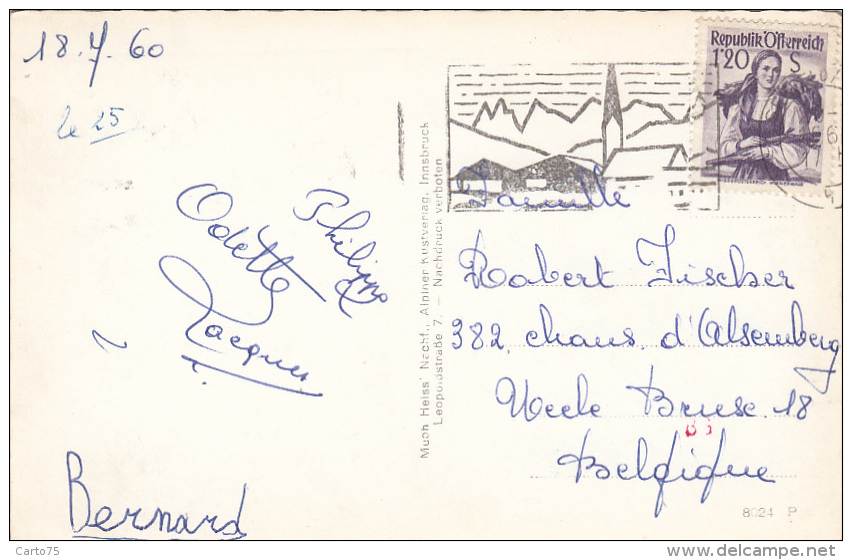 18.7.60
le 25
Philippe
Odette
Jacques
Bernard
Much Heiss' Nachf., Alpiner Kunstverlag, Innsbruck
Leopoldstraße 7. – Nachdruck verboten
Republik Österreich
1'20 S
Famille
Robert Fischer
382, chaus. d'Alsemberg
Uccle Brux. 18
Belgique
8024 P
Carto75
www.delcampe.net